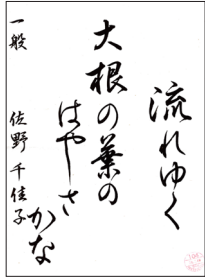 流れゆく
大根の葉の
はやさかな
一般 佐野千佳子